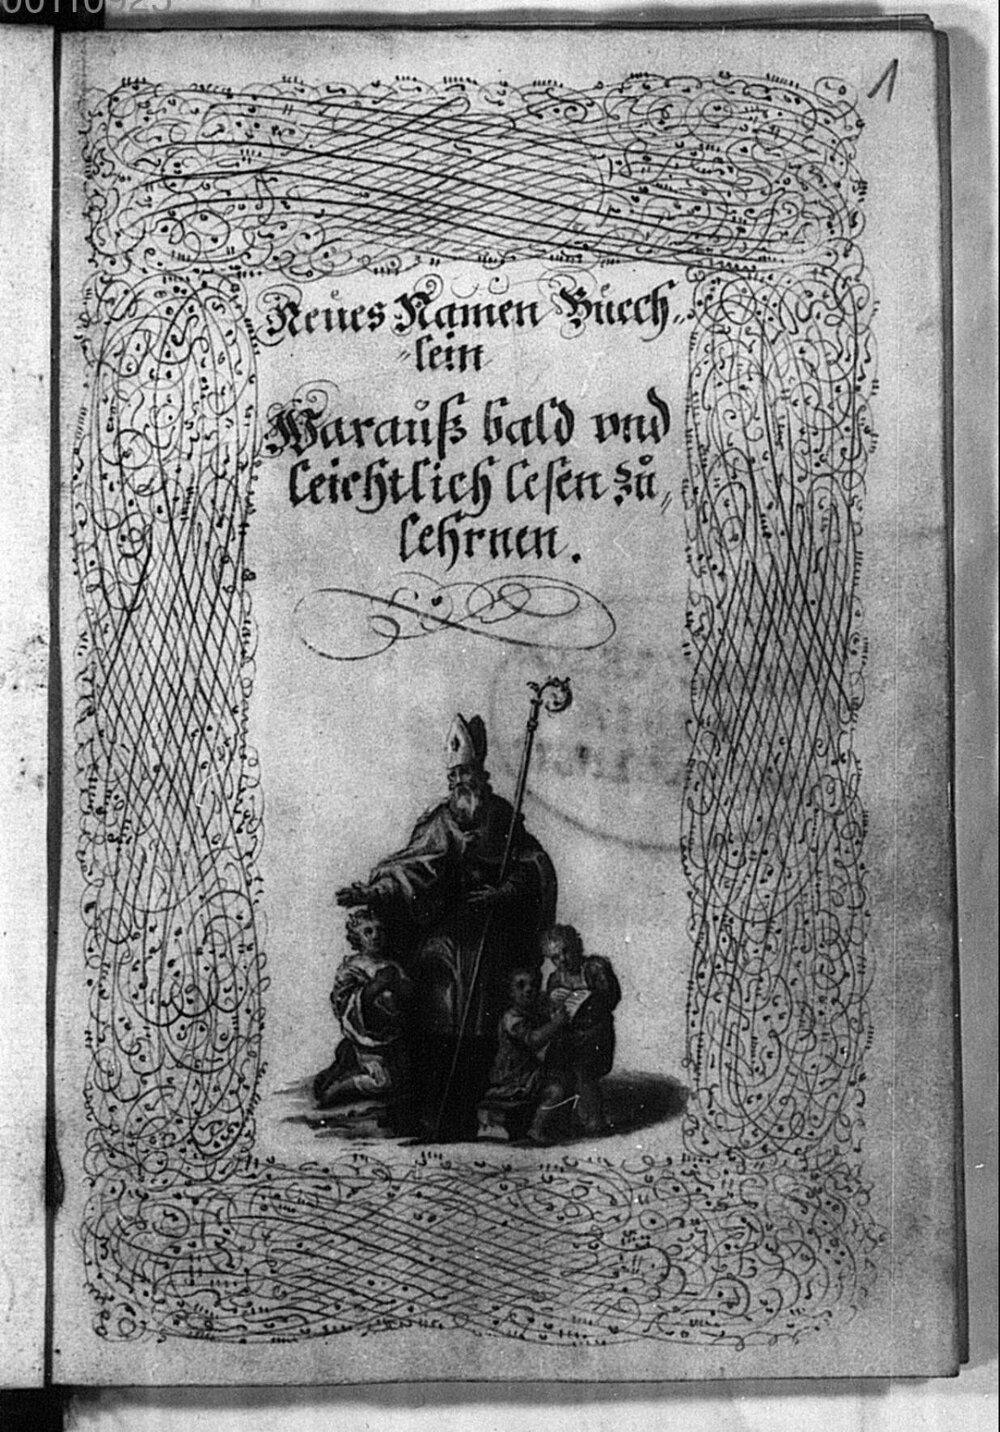 00110925
1
Neües Namen Büech-
-lein
Warauß bald vnd
leichtlich lesen zů
lehrnen.